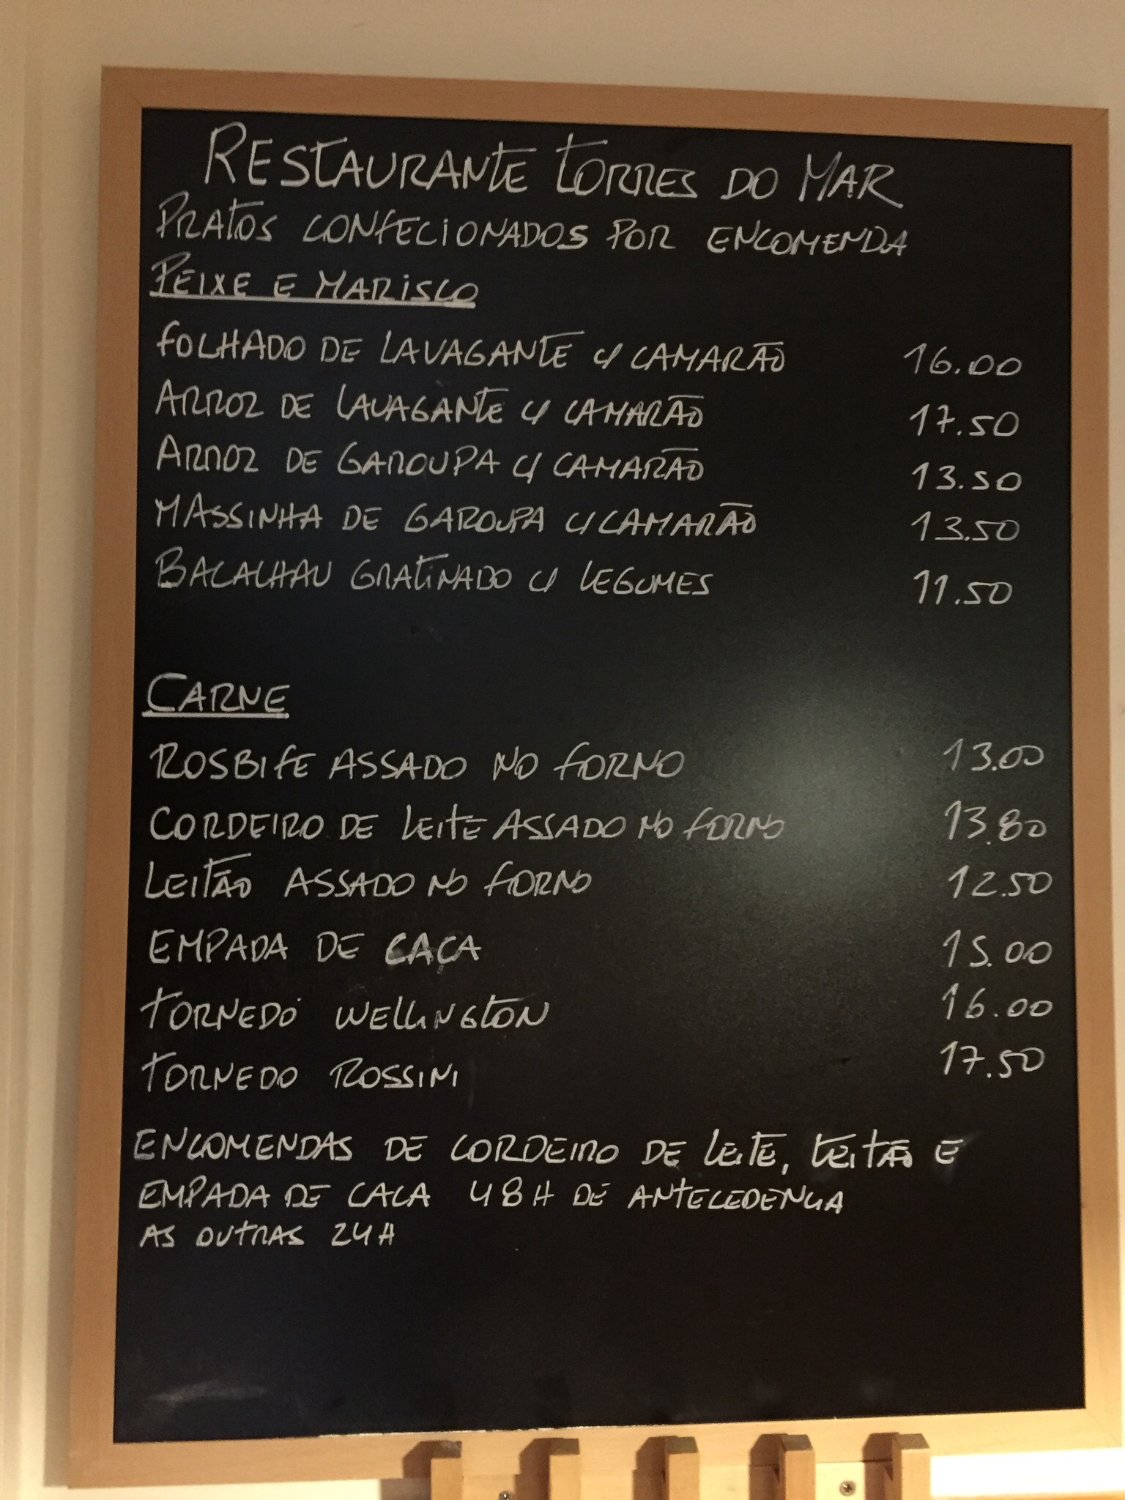 RESTAURANTE TORRES DO MAR
PRATOS CONFECIONADOS POR ENCOMENDA
PEIXE E MARISCO
FOLHADO DE LAVAGANTE C/ CAMARÃO 16.00
ARROZ DE LAVAGANTE C/ CAMARÃO 17.50
ARROZ DE GAROUPA C/ CAMARÃO 13.50
MASSINHA DE GAROUPA C/ CAMARÃO 13.50
BACALHAU GRATINADO C/ LEGUMES 11.50
CARNE
ROSBIFE ASSADO NO FORNO 13.00
CORDEIRO DE LEITE ASSADO NO FORNO 13.80
LEITÃO ASSADO NO FORNO 12.50
EMPADA DE CAÇA 15.00
TORNEDÓ WELLINGTON 16.00
TORNEDO ROSSINI 17.50
ENCOMENDAS DE CORDEIRO DE LEITE, LEITÃO E
EMPADA DE CACA 48H DE ANTECEDENCIA
AS OUTRAS 24H